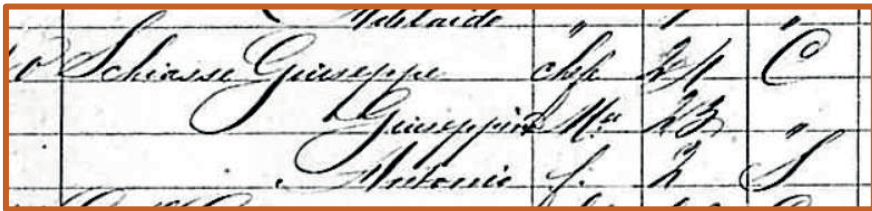 Adelaide "
Schiassi Giuseppe " 24 C
Giuseppina Ma 23 "
Antonio f. 2 S